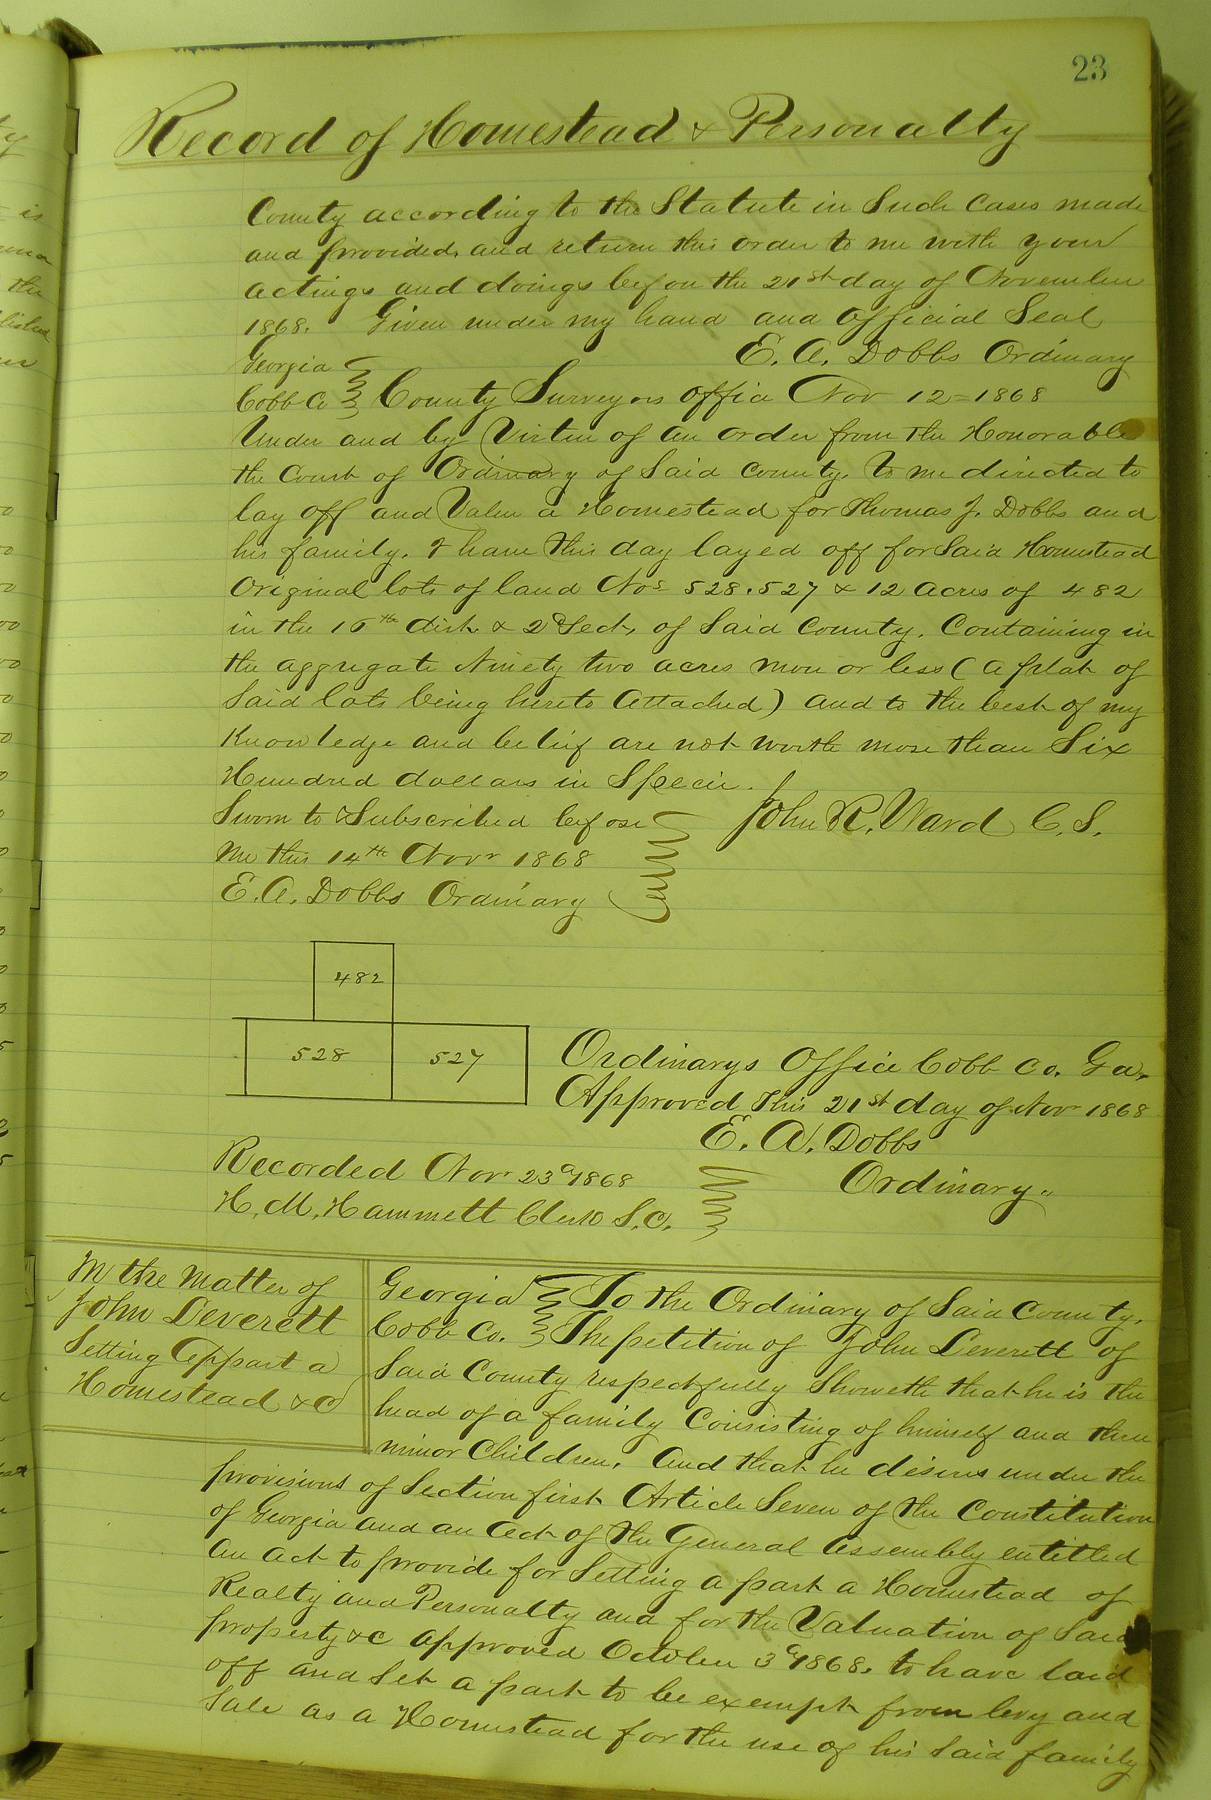 23
Record of Homestead & Personalty
County according to the Statute in Such Cases made
and provided, and return this order to me with your
actings and doings before the 21st day of November
1868. Given under my hand and official Seal
E. A. Dobbs Ordinary
Georgia
Cobb Co County Surveyors office Nov 12 = 1868
Under and by Virtue of an order from the Honorable
the Court of Ordinary of Said County, to me directed to
lay off and Value a Homestead for Thomas J. Dobbs and
his family. I have this day layed off for Said Homestead
Original lots of land Nos 528. 527 & 12 acres of 482
in the 16th dist & 2d Sect, of Said County. Containing in
the aggregate Ninety two acres more or less (a plat of
Said lots being hereto attached) and to the best of my
Knowledge and belief are not worth more than Six
Hundred dollars in Specie.
Sworn to & Subscribed before
John R. Ward C. S.
me this 14th Novr 1868
E. A. Dobbs Ordinary
482
528 527
Ordinarys Office Cobb Co. Ga.
Approved this 21st day of Nov 1868
E. A. Dobbs
Ordinary.
Recorded Nov 23d 1868
H. M. Hammett Clerk S. C.
In the Matter of
John Leverett
Setting Appart a
Homestead &c
Georgia To the Ordinary of Said County.
Cobb Co. The petition of John Leverett of
Said County respectfully Showeth that he is the
head of a family Consisting of himself and three
minor Children. And that he desires under the
provisions of Section first Article Seven of the Constitution
of Georgia and an act of the General Assembly entitled
an act to provide for Setting a part a Homestead of
Realty and Personalty and for the Valuation of Said
property &c approved October 3d 1868. to have laid
off and Set a part to be exempt from levy and
Sale as a Homestead for the use of his Said family